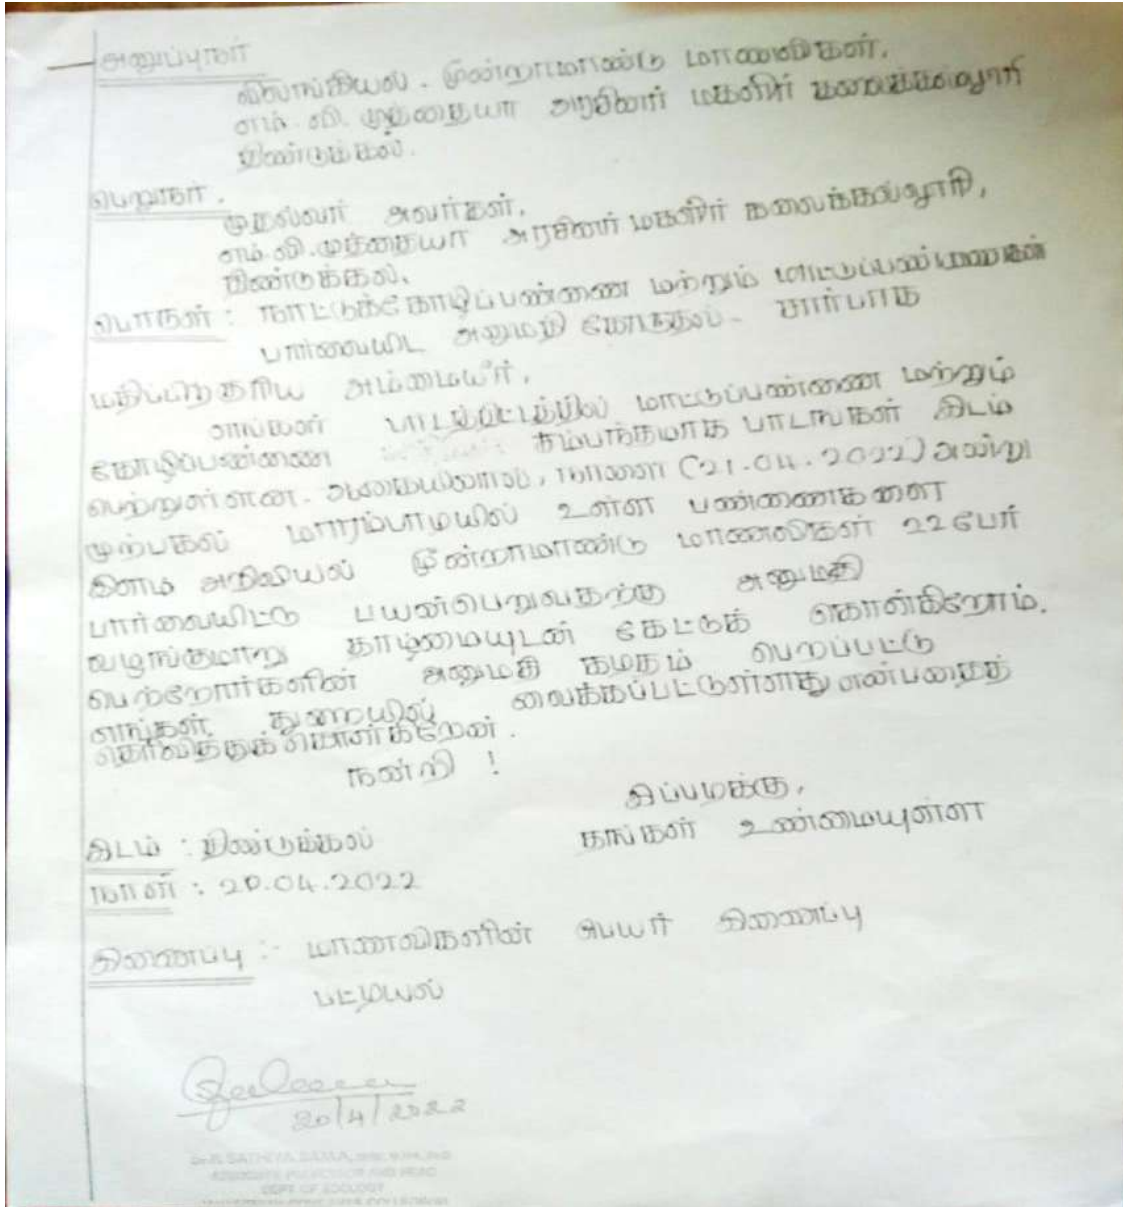 அனுப்புநர்
விலங்கியல் . மூன்றாமாண்டு மாணவிகள்,
எம். வி. முத்தையா அரசினர் மகளிர் கலைக்கல்லூரி
திண்டுக்கல்.
பெறுநர் .
முதல்வர் அவர்கள்,
எம்.வி.முத்தையா அரசினர் மகளிர் கலைக்கல்லூரி,
திண்டுக்கல்.
பொருள் : நாட்டுக்கோழிப்பண்ணை மற்றும் மாட்டுப்பண்ணைகள்
பார்வையிட அனுமதி கோருதல் - சார்பாக
மதிப்பிற்குரிய அம்மையீர்,
எங்கள் பாடத்திட்டத்தில் மாட்டுப்பண்ணை மற்றும்
கோழிப்பண்ணை சம்பந்தமாக பாடங்கள் இடம்
பெற்றுள்ளன. ஆகையினால், நாளை (21.04.2022) அன்று
முற்பகல் மாரம்பாடியில் உள்ள பண்ணைகளை
இளம் அறிவியல் மூன்றாமாண்டு மாணவிகள் 22 பேர்
பார்வையிட்டு பயன்பெறுவதற்கு அனுமதி
வழங்குமாறு தாழ்மையுடன் கேட்டுக் கொள்கிறோம்.
பெற்றோர்களின் அனுமதி கடிதம் பெறப்பட்டு
எங்கள் துறையில் வைக்கப்பட்டுள்ளது என்பதைத்
தெரிவித்துக் கொள்கிறேன் .
நன்றி !
இப்படிக்கு,
இடம் : திண்டுக்கல் தங்கள் உண்மையுள்ள
நாள் : 20.04.2022
இணைப்பு :- மாணவிகளின் பெயர் இணைப்பு
பட்டியல்
20/4/2022
ASSOCIATE PROFESSOR AND HEAD
DEPT OF ZOOLOGY